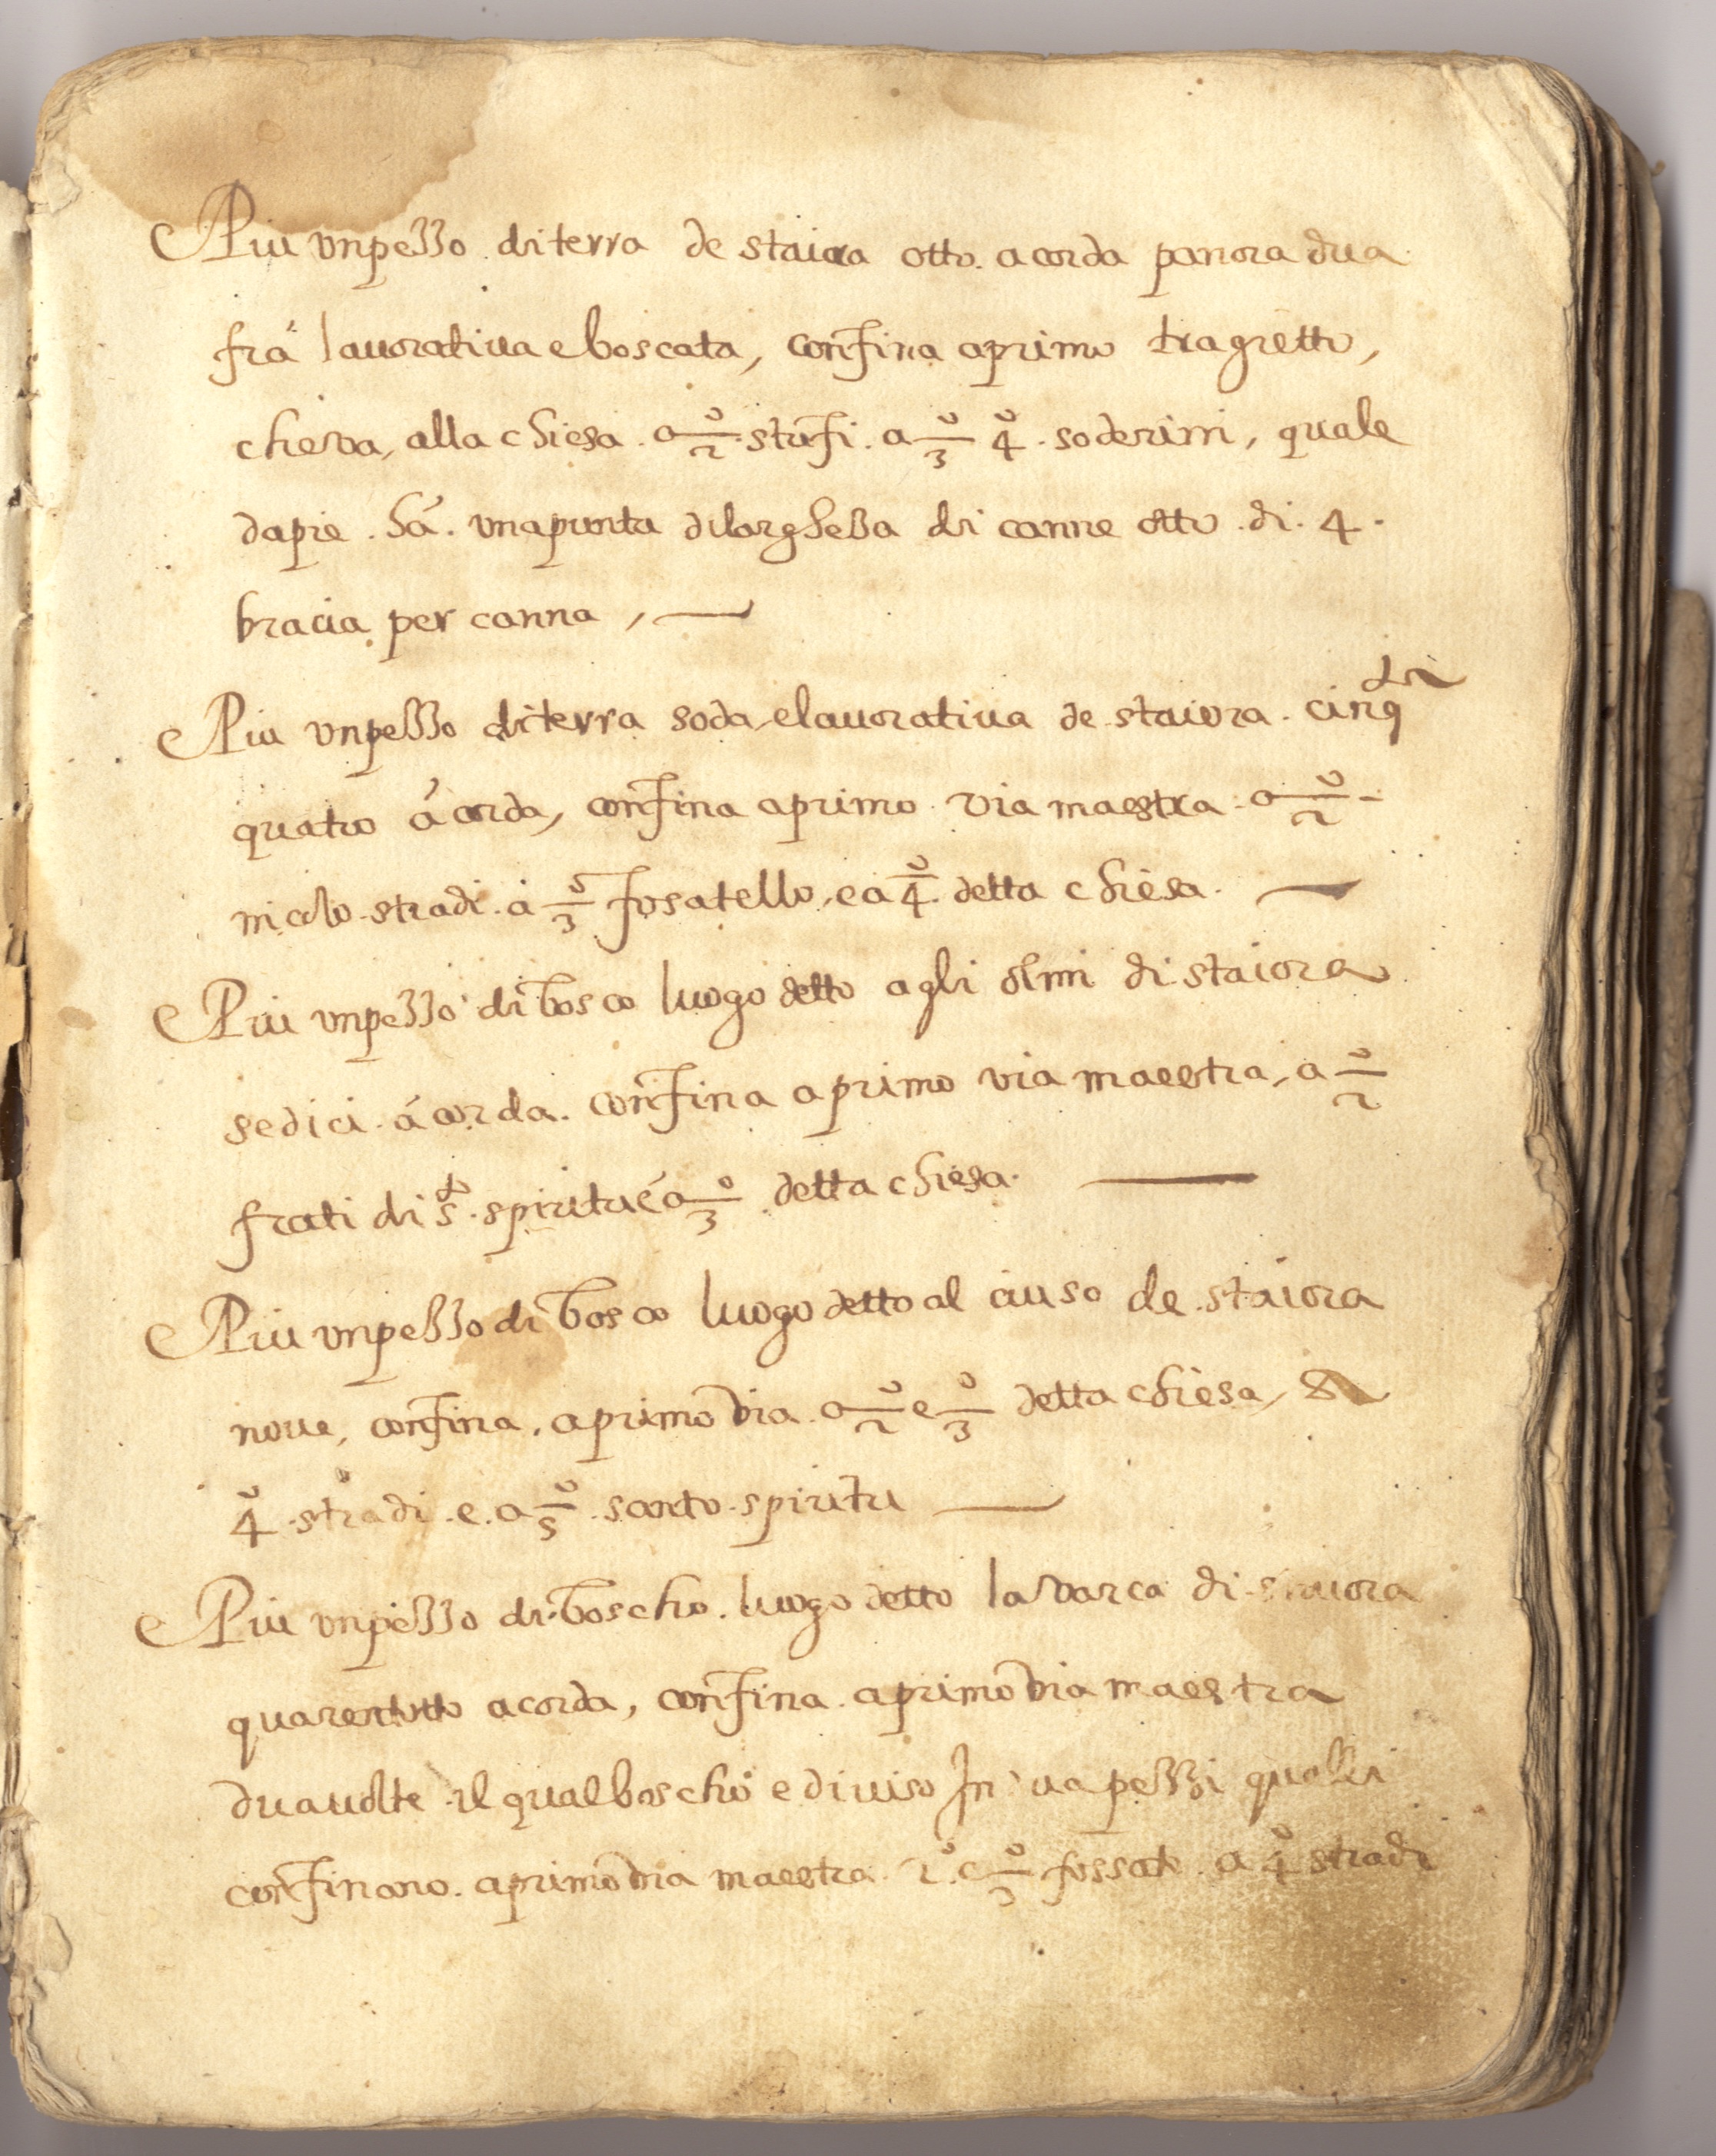 Piu unpezzo diterra de staiora otto. acorda panora dua
frá lavorativa eboscata, confina aprimo tragietto,
cheva, alla chiesa. a 2º. stufi. a 3º 4º. soderini, quale
dapie. há. unapunta dilargheza di canne otto. di. 4.
bracia per canna,
Piu unpezzo diterra soda, elavorativa de staiora. cinq
quatro á corda, confina aprimo via maestra. a 2º
nicolo stradi. a 3º fosatello, e a 4º. detta chiesa.
Piu unpezzo di bosco luogo detto agli olmi di staiora
sedici. á corda. confina aprimo via maestra, a 2º
frati di Sto. spiritu é a 3º. detta chiesa.
Piu unpezzo di bosco luogo detto al ciuso de staiora
nove, confina, aprimo via. a 2º e 3º detta chiesa, &
4º. stradi. e. a 5º. santo. spiritu
Piu unpezzo di boscho. luogo detto la varca di staiora
quarentotto acorda, confina. aprimo via maestra
duavolte il qualboscho e diviso In dua pezzi quali
confinano. aprimo via maestra. 2º. e 3º fossate. a 4º stradi